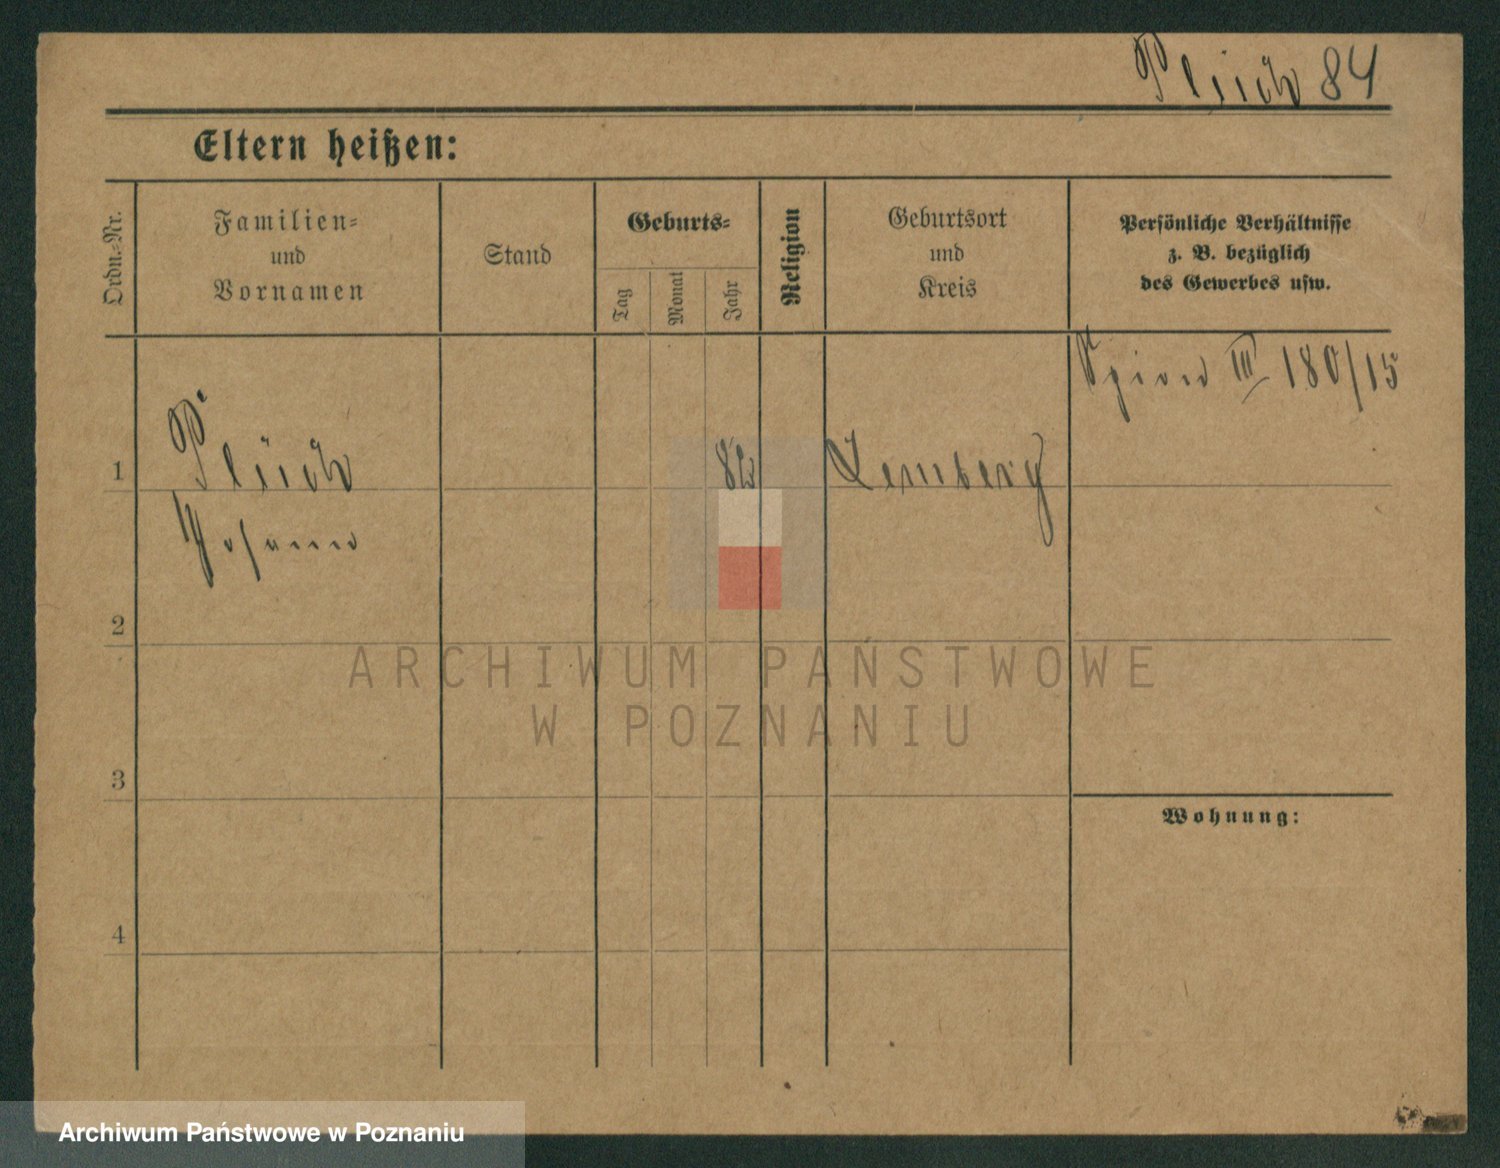 Plüch 84
Eltern heißen:
Ordn.-Nr.
Familien-
und
Vornamen
Stand
Geburts-
Tag
Monat
Jahr
Religion
Geburtsort
und
Kreis
Persönliche Verhältnisse
z. B. bezüglich
des Gewerbes usw.
Spion III 180/15
1
Plüch
Johann
82
Lemberg
2
ARCHIWUM PAŃSTWOWE
W POZNANIU
3
Wohnung:
4
Archiwum Państwowe w Poznaniu